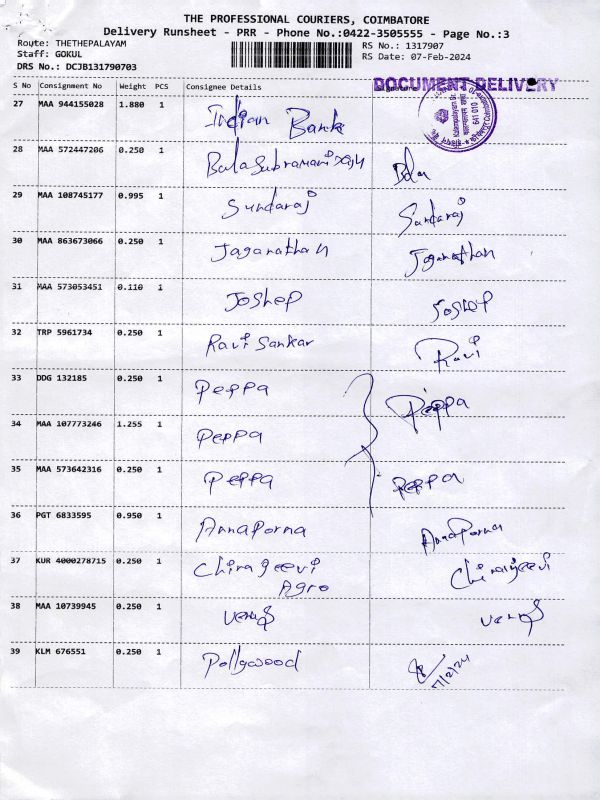 THE PROFESSIONAL COURIERS, COIMBATORE
Delivery Runsheet - PRR - Phone No.:0422-3505555 - Page No.:3
Route: THETHEPALAYAM
Staff: GOKUL
DRS No.: DCJB131790703
RS No.: 1317907
RS Date: 07-Feb-2024
DOCUMENT DELIVERY
S No Consignment No Weight PCS Consignee Details
27 MAA 944155028 1.880 1 Indian Bank
641 010
28 MAA 572447206 0.250 1 Balasubramaniyam Bala
29 MAA 108745177 0.995 1 Sundaraj Sundaraj
30 MAA 863673066 0.250 1 Jaganathan Jaganathan
31 MAA 573053451 0.110 1 Joshep Joshep
32 TRP 5961734 0.250 1 Ravi Sankar Ravi
33 DDG 132185 0.250 1 Peppa Peppa
34 MAA 107773246 1.255 1 Peppa
35 MAA 573642316 0.250 1 Peppa Peppa
36 PGT 6833595 0.950 1 AnnaPorna AnnaPorna
37 KUR 4000278715 0.250 1 Chirajeevi Chirajeevi
Agro
38 MAA 10739945 0.250 1
39 KLM 676551 0.250 1 Pollywood
7/2/24